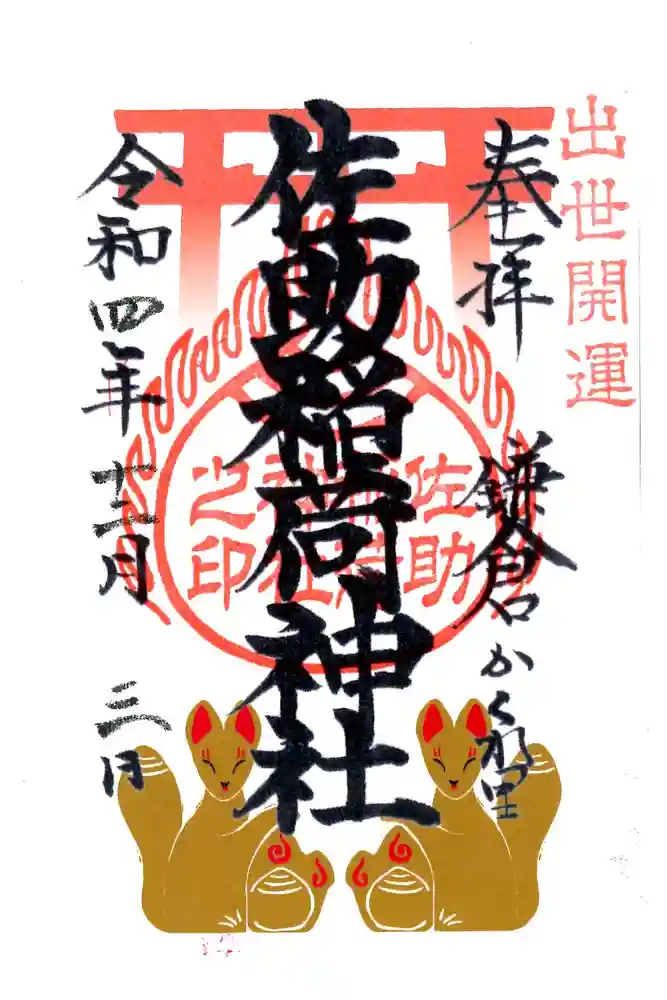 出世開運
奉拝
鎌倉かくれ里
佐助稲荷神社
佐助稲荷神社之印
令和四年十二月三日